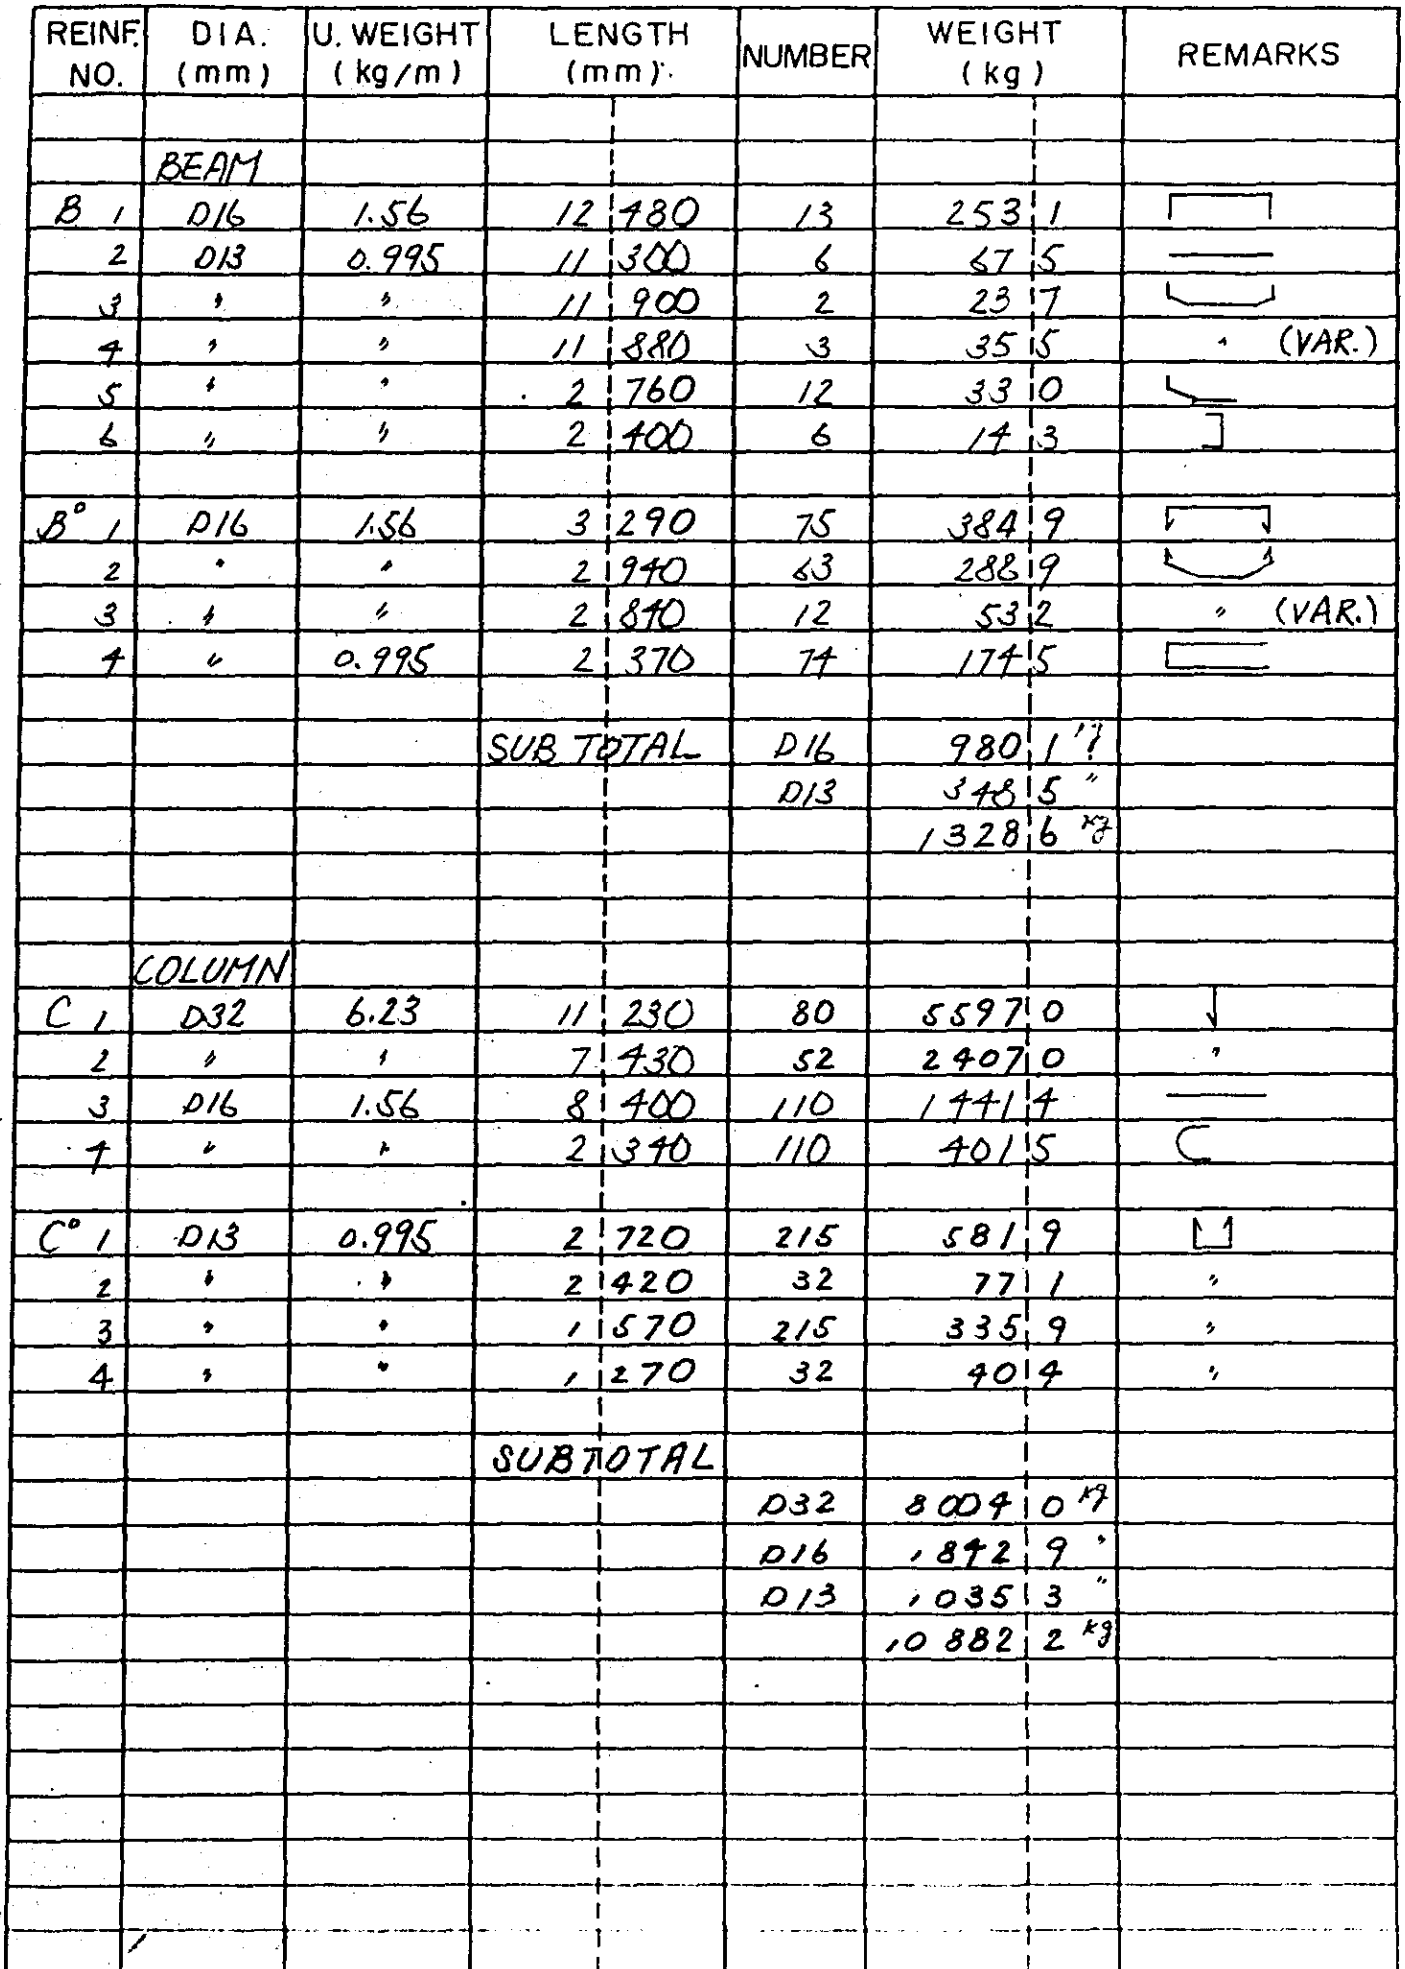 REINF. NO. DIA. (mm) U. WEIGHT (kg/m) LENGTH (mm) NUMBER WEIGHT (kg) REMARKS
BEAM
B 1 D16 1.56 12 480 13 253 1
2 D13 0.995 11 300 6 67 5
3 " " 11 900 2 23 7
4 " " 11 880 3 35 5 " (VAR.)
5 " " 2 760 12 33 0
6 " " 2 400 6 14 3
B° 1 D16 1.56 3 290 75 384 9
2 " " 2 940 63 288 9
3 " " 2 840 12 53 2 " (VAR.)
4 " 0.995 2 370 74 174 5
SUB TOTAL D16 980 1 kg
D13 348 5 "
1328 6 kg
COLUMN
C 1 D32 6.23 11 230 80 5597 0
2 " " 7 430 52 2407 0 "
3 D16 1.56 8 400 110 1441 4
4 " " 2 340 110 401 5
C° 1 D13 0.995 2 720 215 581 9
2 " " 2 420 32 77 1 "
3 " " 1 570 215 335 9 "
4 " " 1 270 32 40 4 "
SUBTOTAL
D32 8004 0 kg
D16 1842 9 "
D13 1035 3 "
10882 2 kg